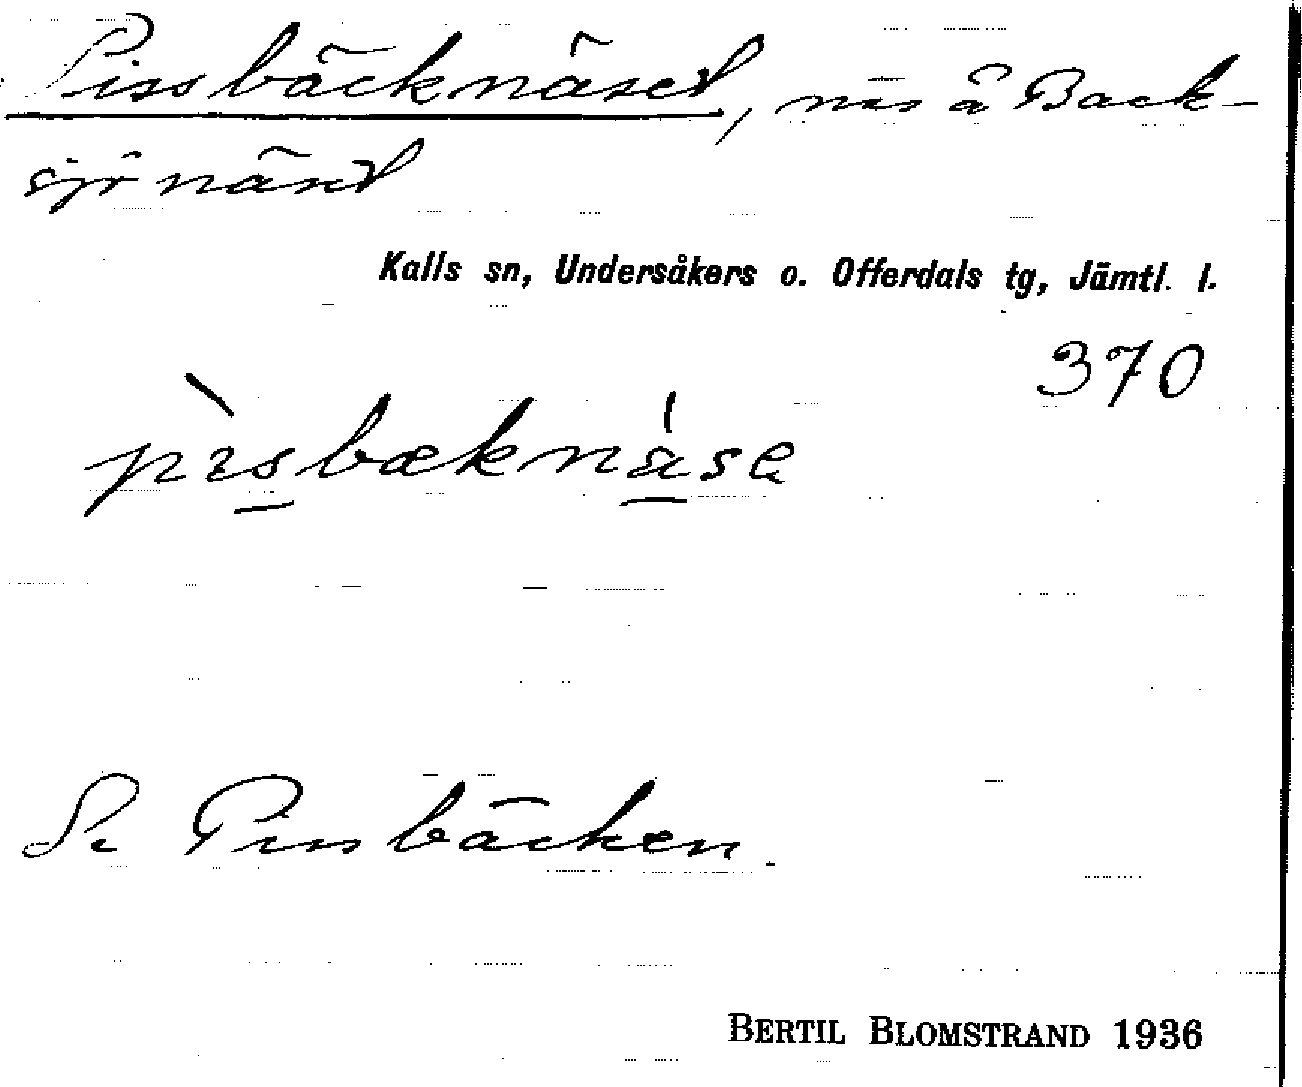 Pissbäcknäset, näs å Back-
sjönäset
Kalls sn, Undersåkers o. Offerdals tg, Jämtl. l.
370
pı̀sbæknása
Se Pissbäcken.
BERTIL BLOMSTRAND 1936